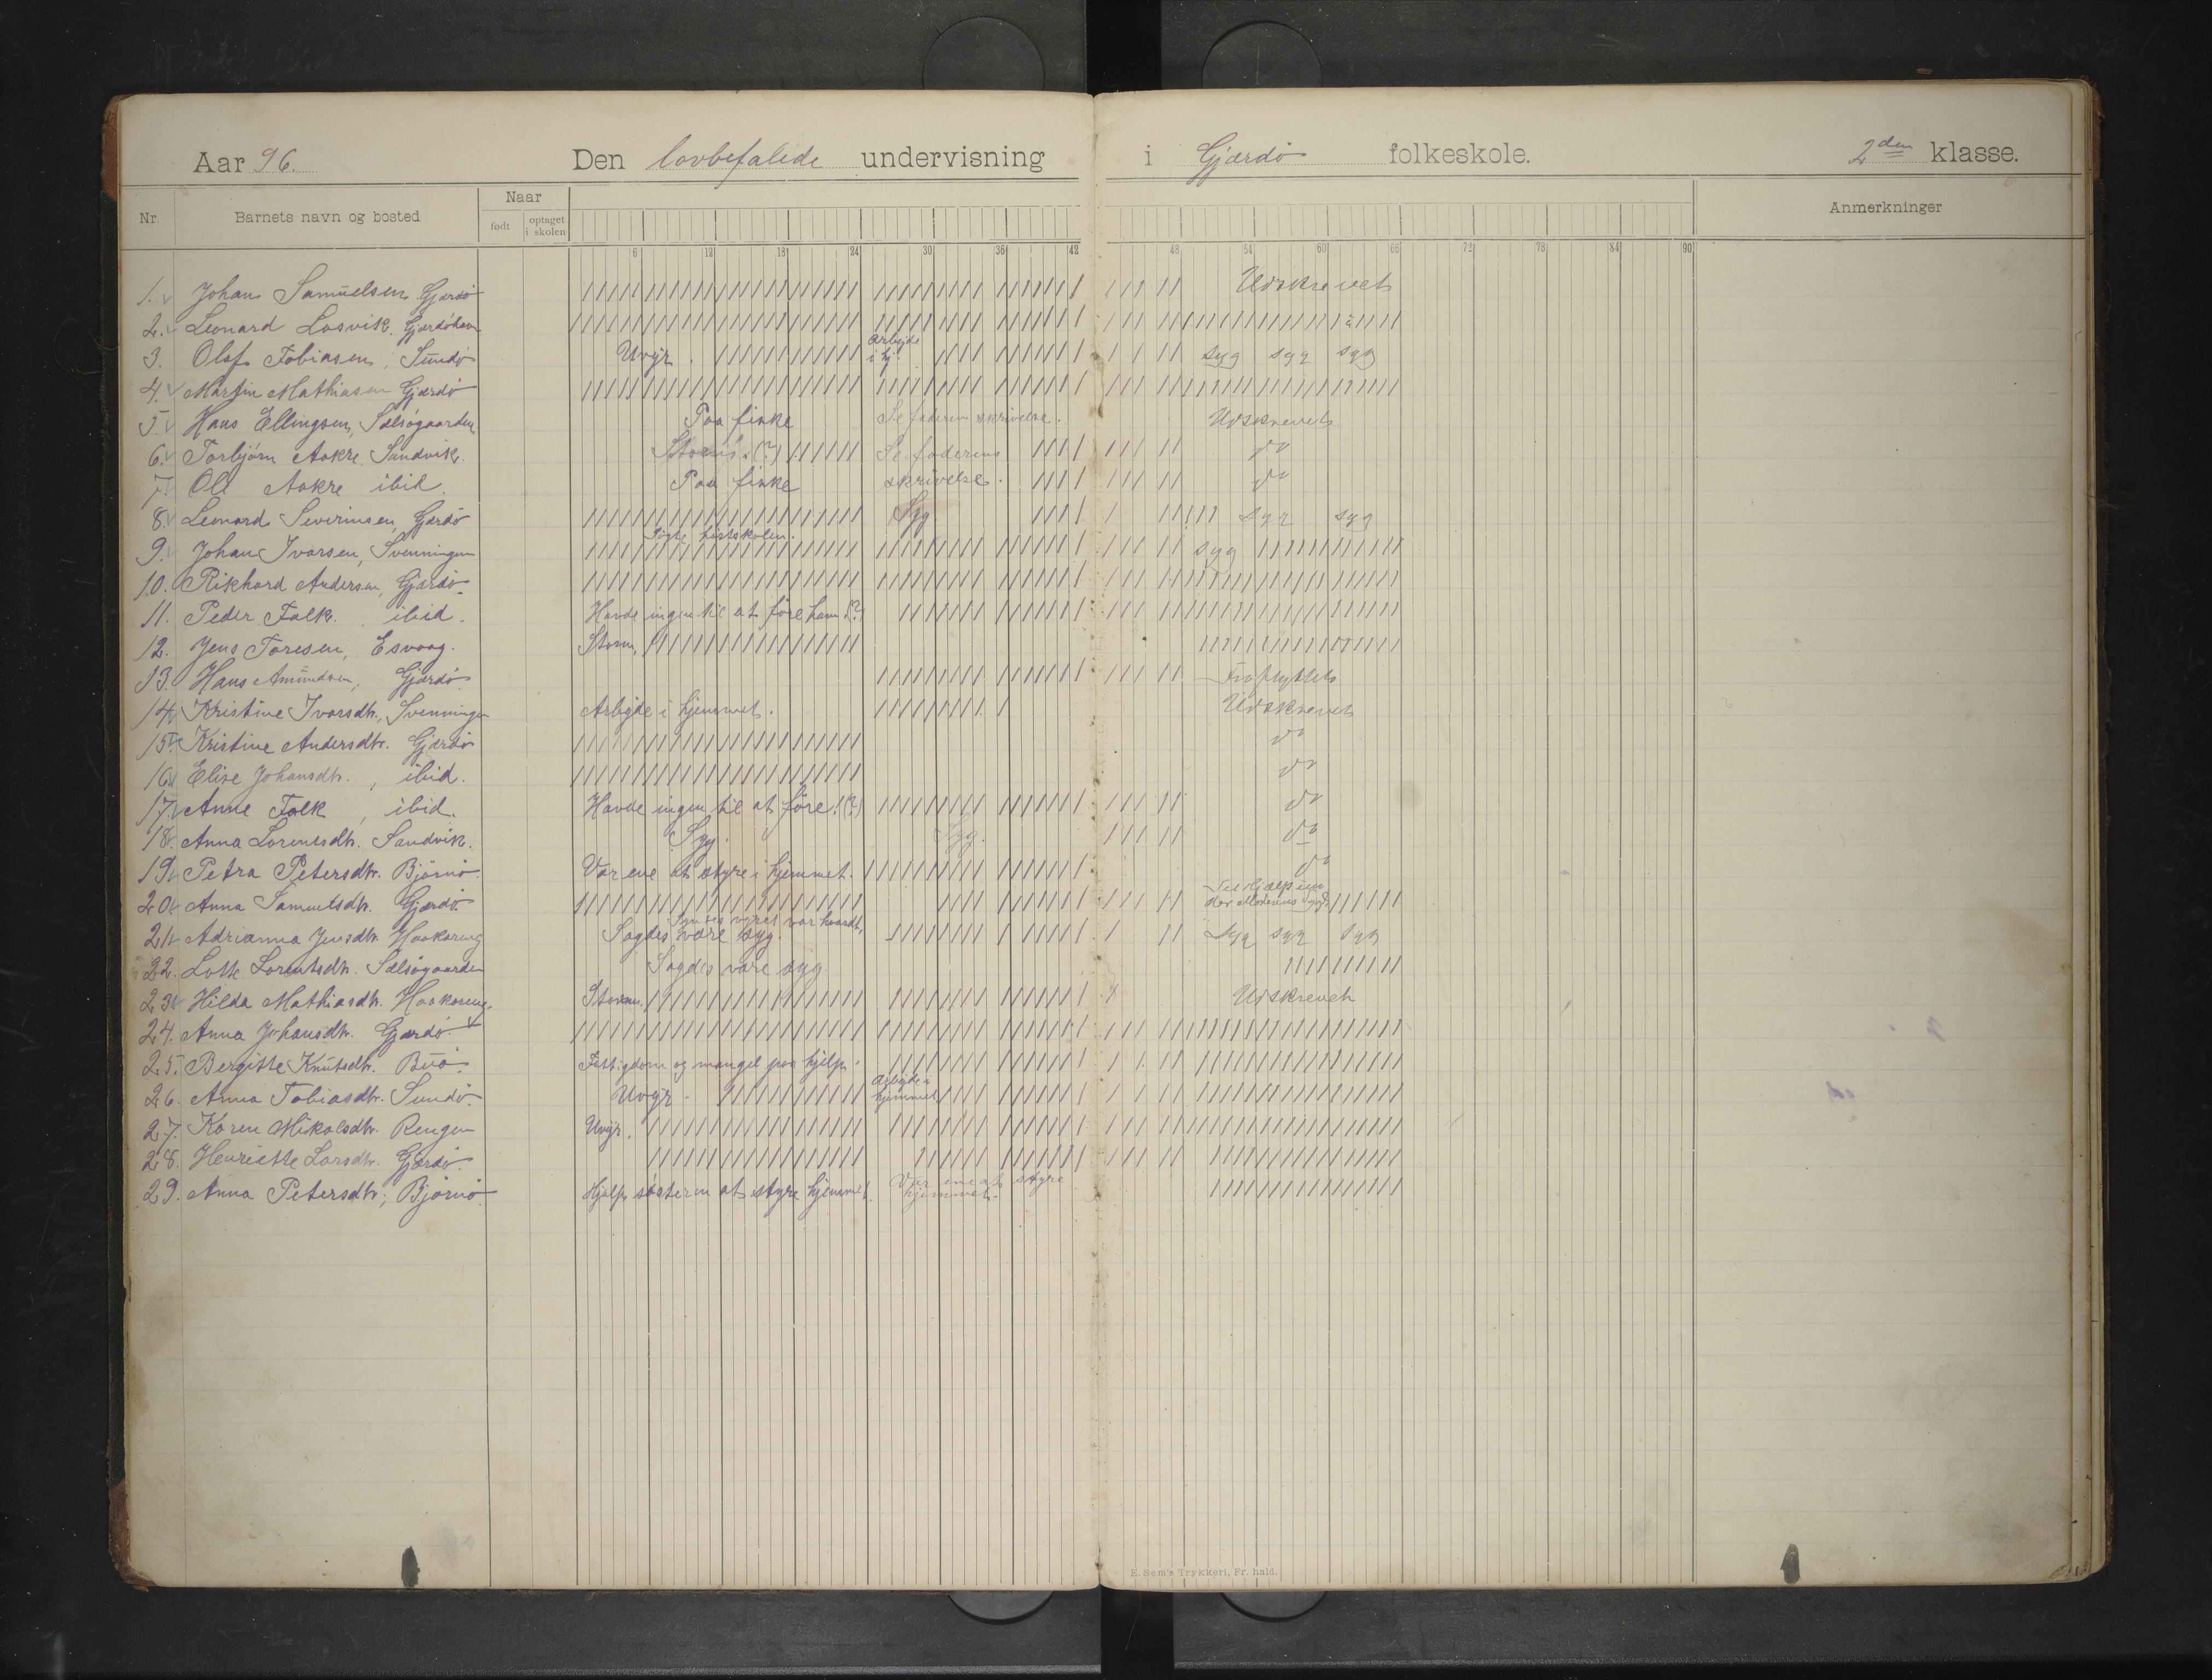 Aar 96. Den lovbefalede undervisning i Gjærdö folkeskole. 2den klasse.
Nr Barnets navn og bosted Naar født optaget i skolen Anmerkninger
6 12 18 24 30 36 42 48 54 60 66 72 78 84 90
1. Johan Samuelsen Gjærdö Udskrevet
2. Leonard Losvik. Gjærdöhavn
3. Olaf Tobiasen, Sundö Uvejr. Arbejde i hj. syg syg syg
4. Martin Mathiasen Gjærdö
5. Hans Ellingsen, Selsögaarden Paa fiske Se faderens skrivelse. Udskrevet
6. Torbjörn Aakre Sandvik. (?) Se faderens do
7. Ole Aakre ibid. Paa fiske skrivelse. do
8. Leonard Severinsen, Gjærdö Syg syg syg
9. Johan Ivarsen, Svenningen Sögte fastskolen. syg
10. Rikhard Andersen, Gjærdö
11. Peder Falk. ibid. Havde ingen til at före ham!?
12. Jens Toresen, Esvaag. Storm,
13. Hans Amundsen, Gjærdö Fraflyttet
14. Kristine Ivarsdtr., Svenningen Arbejde i hjemmet. Udskrevet
15. Kristine Andersdtr. Gjærdö do
16. Elise Johansdtr., ibid. do
17. Anne Falk, ibid. Havde ingen til at före!(?) do
18. Anna Lorentsdtr. Sandvik. Syg. Syg. do
19. Petra Petersdtr. Björnö Var ene at styre i hjemmet. do
20. Anna Samuelsdtr. Gjærdö. Til hjælp un
der Moderens sygd.
21. Adrianna Jensdtr. Haakareng Syntes vejret var haardt. Sagdes være syg. Syg syg syg
22. Lotte Lorentsdtr. Selsögaarden Sagdes være syg.
23. Hilda Mathiasdtr. Haakareng. Storm. Udskrevet
24. Anna Johansdtr. Gjærdö
25. Bergitte Knutsdtr. Buö. Fattigdom og mangel paa hjelp.
26. Anna Tobiasdtr. Sundö. Uvejr. Arbejde i hjemmet
27. Karen Mikalsdtr. Rengen Uvejr.
28. Henriette Larsdtr. Gjærdö.
29. Anna Petersdtr., Björnö Hjalp söstern at styre hjemmet. Var ene at styre
hjemmet.
E. Sem's Trykkeri, Fr. hald.